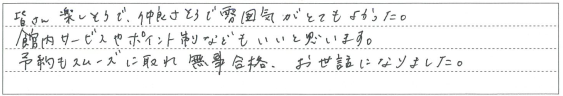 皆さん楽しそうで、仲良さそうで雰囲気がとてもよかった。
館内サービスやポイント制などもいいと思います。
予約もスムーズに取れ無事合格、お世話になりました。